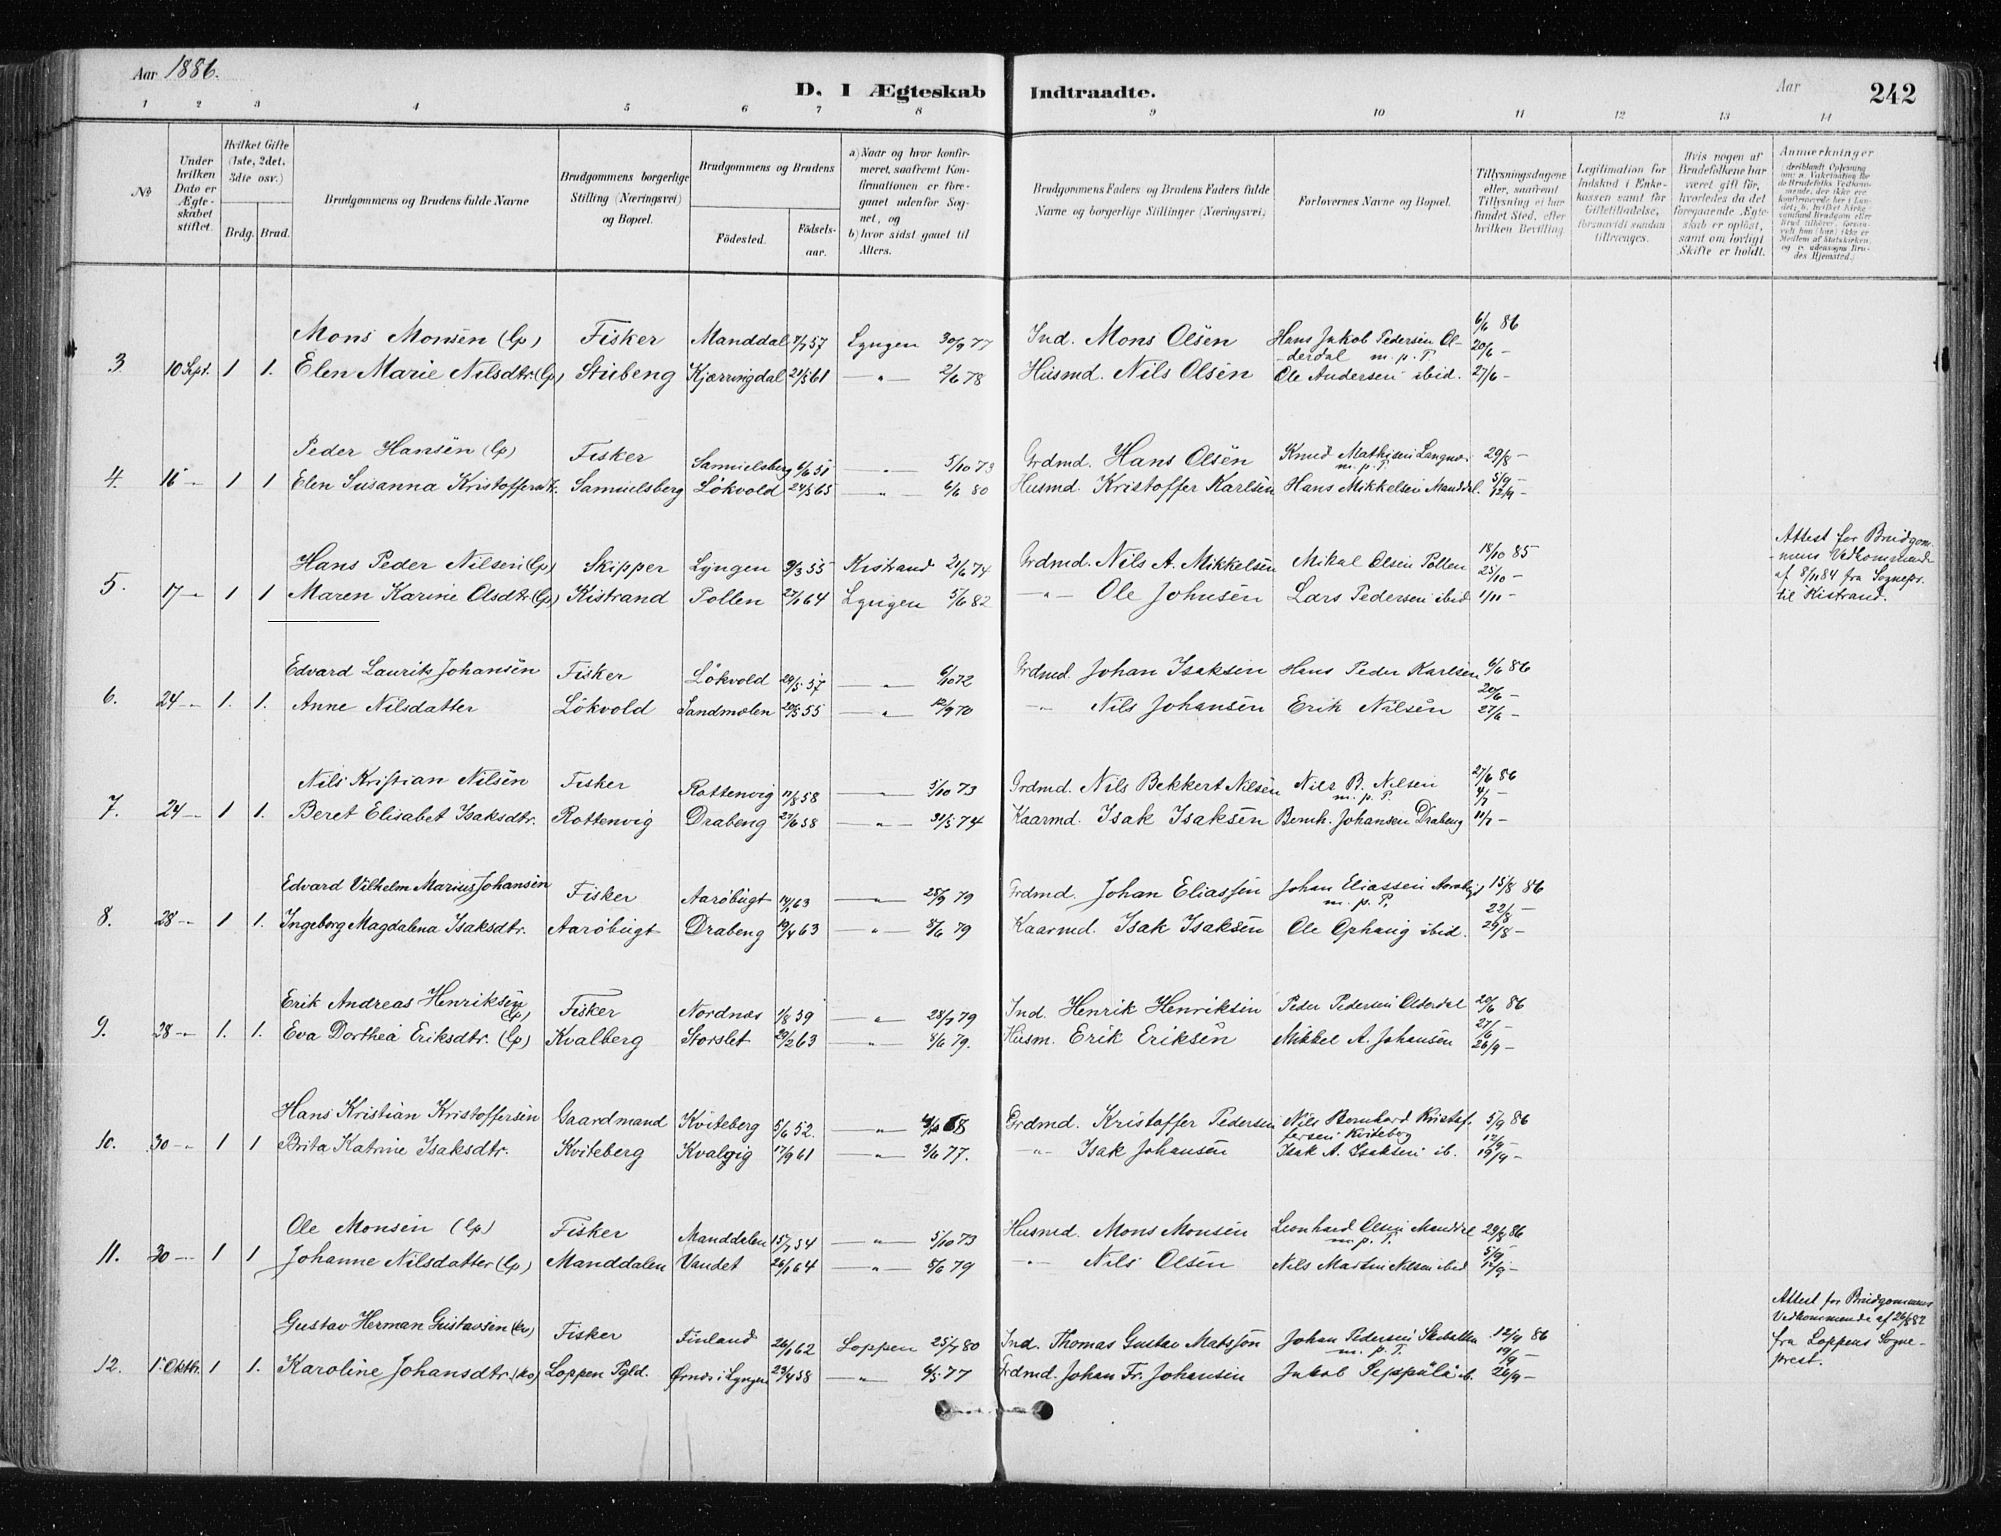 Aar 1886.
D. I Ægteskab Indtraadte.
Aar
242
1 2 3 4 5 6 7 8 9 10 11 12 13 14
No
Under hvilken Dato er Ægteskabet stiftet.
Hvilket Gifte (1ste, 2det, 3die osv.)
Brdg. Brud.
Brudgommens og Brudens fulde Navne
Brudgommens borgerlige Stilling (Næringsvei) og Bopæl.
Brudgommens og Brudens
Födested. Födselsaar.
a) Naar og hvor konfirmeret, saafremt Konfirmationen er foregaaet udenfor Sognet, og
b) hvor sidst gaaet til Alters.
Brudgommens Faders og Brudens Faders fulde Navne og borgerlige Stillinger (Næringsvei)
Forlovernes Navne og Bopæl.
Tillysningsdagene eller, saafremt Tillysning ei har fundet Sted, efter hvilken Bevilling.
Legitimation for Indskud i Enkekassen samt for Giftetilladelse, forsaavidt saadan tiltrænges.
Hvis nogen af Brudefolkene har været gift för, hvorledes da det foregaaende Ægteskab er oplöst, samt om lovligt Skifte er holdt.
Anmærkninger
Mons Monsen (Lp) Fisker Manddal 7/7 57 Lyngen 30/9 77 Ind. Mons Olsen Hans Jakob Pedersen Ol- 6/6 86
-derdal m. p. P. 20/6 -
3. 10 Sept. 1 1. Elen Marie Nilsdtr. (Lp) Stubeng Kjerringdal 21/5 61 — " — 2/6 78 Husmd. Nils Olsen Ole Andersen ibid. 27/6 -
Peder Hansen (Lp) Fisker Samuelsberg 6/6 51 — " — 5/10 73 Grdmd. Hans Olsen Knud Mathisen Langnes 29/8 -
m. p. P. 5/9 -
4. 16 - 1 1 Elen Susanna Kristoffersdtr. Samuelsberg Lökvold 24/5 65 — " — 6/6 80 Husmd. Kristoffer Karlsen Hans Mikkelsen Manddal. 12/9 -
Hans Peder Nilsen (Lp) Skipper Lyngen 9/3 55 Kistrand 21/6 74 Grdmd. Nils A. Mikkelsen Mikal Olsen Pollen 18/10 85 Attest for Brudgom-
25/10 - -mens Vedkommende
5. 17 - 1 1 Maren Karine Olsdtr. (Lp) Kistrand Pollen 27/1 64 Lyngen 5/6 82 — " — Ole Johnsen Lars Pedersen ibid 1/11 - af 8/11 84 fra Sognepr.
til Kistrand.
Edvard Laurits Johansen Fisker Lökvold 29/5 57 — " — 6/10 72 Grdmd. Johan Isaksen Hans Peder Karlsen 6/6 86
20/6 -
6. 24 - 1. 1. Anne Nilsdatter Lökvold Sandmælen 20/3 55 — " — 12/9 70 — " — Nils Johansen Erik Nilsen 27/6 -
Nils Kristian Nilsen Fisker Rottenvig 17/8 58 — " — 5/10 73 Grdmd. Nils Bekkert Nilsen Nils B. Nilsen 27/6 86
m. p. P. 4/7
7. 24 - 1 1. Beret Elisabet Isaksdtr. Rottenvig Drabeng 27/6 58 — " — 31/5 74 Kaarmd. Isak Isaksen Bernh. Johansen Drabeng 11/7 -
Edvard Vilhelm Marius Johansen Fisker Aaröbugt 14/1 63 — " — 28/9 79 Grdmd. Johan Eliassen Johan Eliassen Aarøbugt 15/8 86
m. p. P. 22/8 -
8. 28 - 1 1. Ingeborg Magdalena Isaksdtr. Aaröbugt Drabeng 19/4 63 — " — 8/6 79 Kaarmd. Isak Isaksen Ole Ophaug ibid. 29/8 -
Erik Andreas Henriksen (Lp) Fisker Nordnæs 1/8 59 — " — 28/9 79 Ind. Henrik Henriksen Peder Pedersen Olderdal 20/6 86
27/6 -
9. 28 - 1. 1. Eva Dorthea Eriksdtr. (Lp) Kvalberg Storslet 22/2 63 — " — 8/6 79. Husm. Erik Eriksen Mikkel A. Johansen 26/9 -
Hans Kristian Kristoffersen Gaardmand Kviteberg 5/6 52. — " — 68 Grdmd. Kristoffer Pedersen Nils Bernhard Kristof- 5/9 86
fersen Kviteberg 12/9 -
10. 30 - 1 1 Brita Katrine Isaksdtr. Kviteberg Kvalvig 17/9 61 — " — 3/6 77. — " — Isak Johansen Isak A. Isaksen ib. 19/9 -
Ole Monsen (Lp) Fisker Manddalen 15/7 54 — " — 5/10 73 Husmd. Mons Monsen Leonhard Olsen Manddal 29/8 86
m. p. P. 5/9 -
11. 30 - 1 1 Johanne Nilsdatter (Lp) Manddalen Vandet 26/1 64 — " — 8/6 79 — " — Nils Olsen Nils Martin Nilsen ibid 12/9 -
Gustav Herman Gustavsen (kv) Fisker Finland 26/1 62 Loppen 25/7 80 Ind. Thomas Gustav Matsson Johan Pedersen Skibotten 12/9 86 Attest for Brudgommens
m. p. P. 19/9 - Vedkommende af 24/8 82
12. 1 Oktbr. 1 1. Karoline Johansdtr. (kv) Loppen Pgld. Ornes i Lyngen 23/4 58 — " — 6/5 77 Grdmd. Johan Fr. Johansen Jakob Seppälä ib. 26/9 - fra Loppens Sogne-
prest.